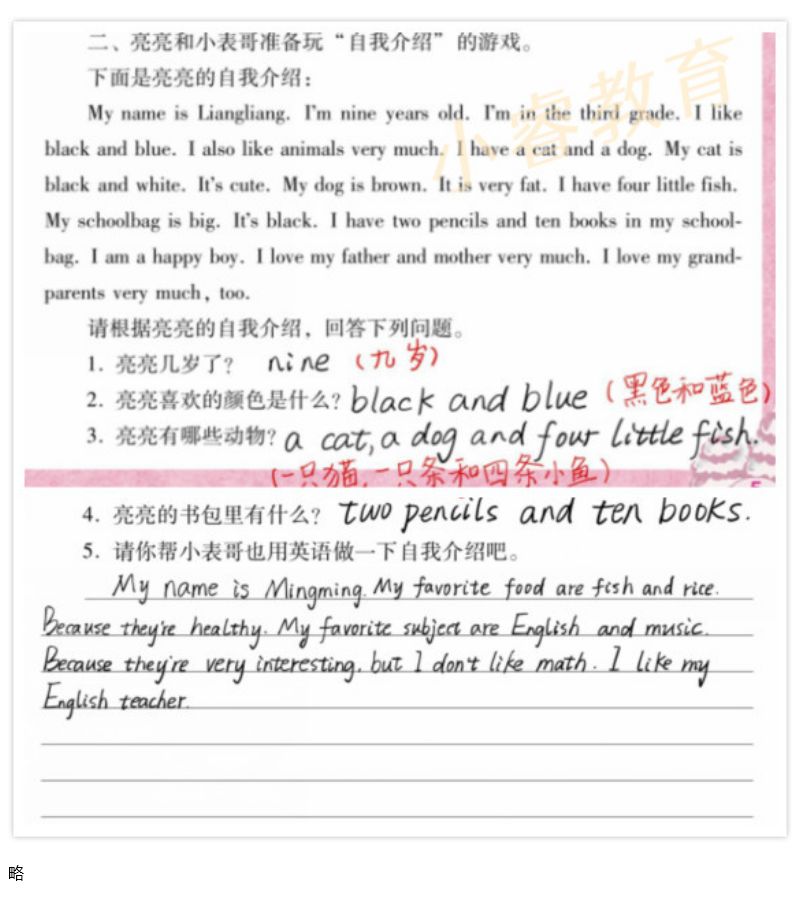 二、亮亮和小表哥准备玩“自我介绍”的游戏。
下面是亮亮的自我介绍：
My name is Liangliang. I'm nine years old. I'm in the third grade. I like
black and blue. I also like animals very much. I have a cat and a dog. My cat is
black and white. It's cute. My dog is brown. It is very fat. I have four little fish.
My schoolbag is big. It's black. I have two pencils and ten books in my school-
bag. I am a happy boy. I love my father and mother very much. I love my grand-
parents very much, too.
小睿教育
请根据亮亮的自我介绍，回答下列问题。
1. 亮亮几岁了？ nine （九岁）
2. 亮亮喜欢的颜色是什么？ black and blue （黑色和蓝色）
3. 亮亮有哪些动物？ a cat, a dog and four little fish.
（一只猫，一只条和四条小鱼）
5
4. 亮亮的书包里有什么？ two pencils and ten books.
5. 请你帮小表哥也用英语做一下自我介绍吧。
My name is Mingming. My favorite food are fish and rice.
Because they're healthy. My favorite subject are English and music.
Because they're very interesting. but I don't like math. I like my
English teacher.
略